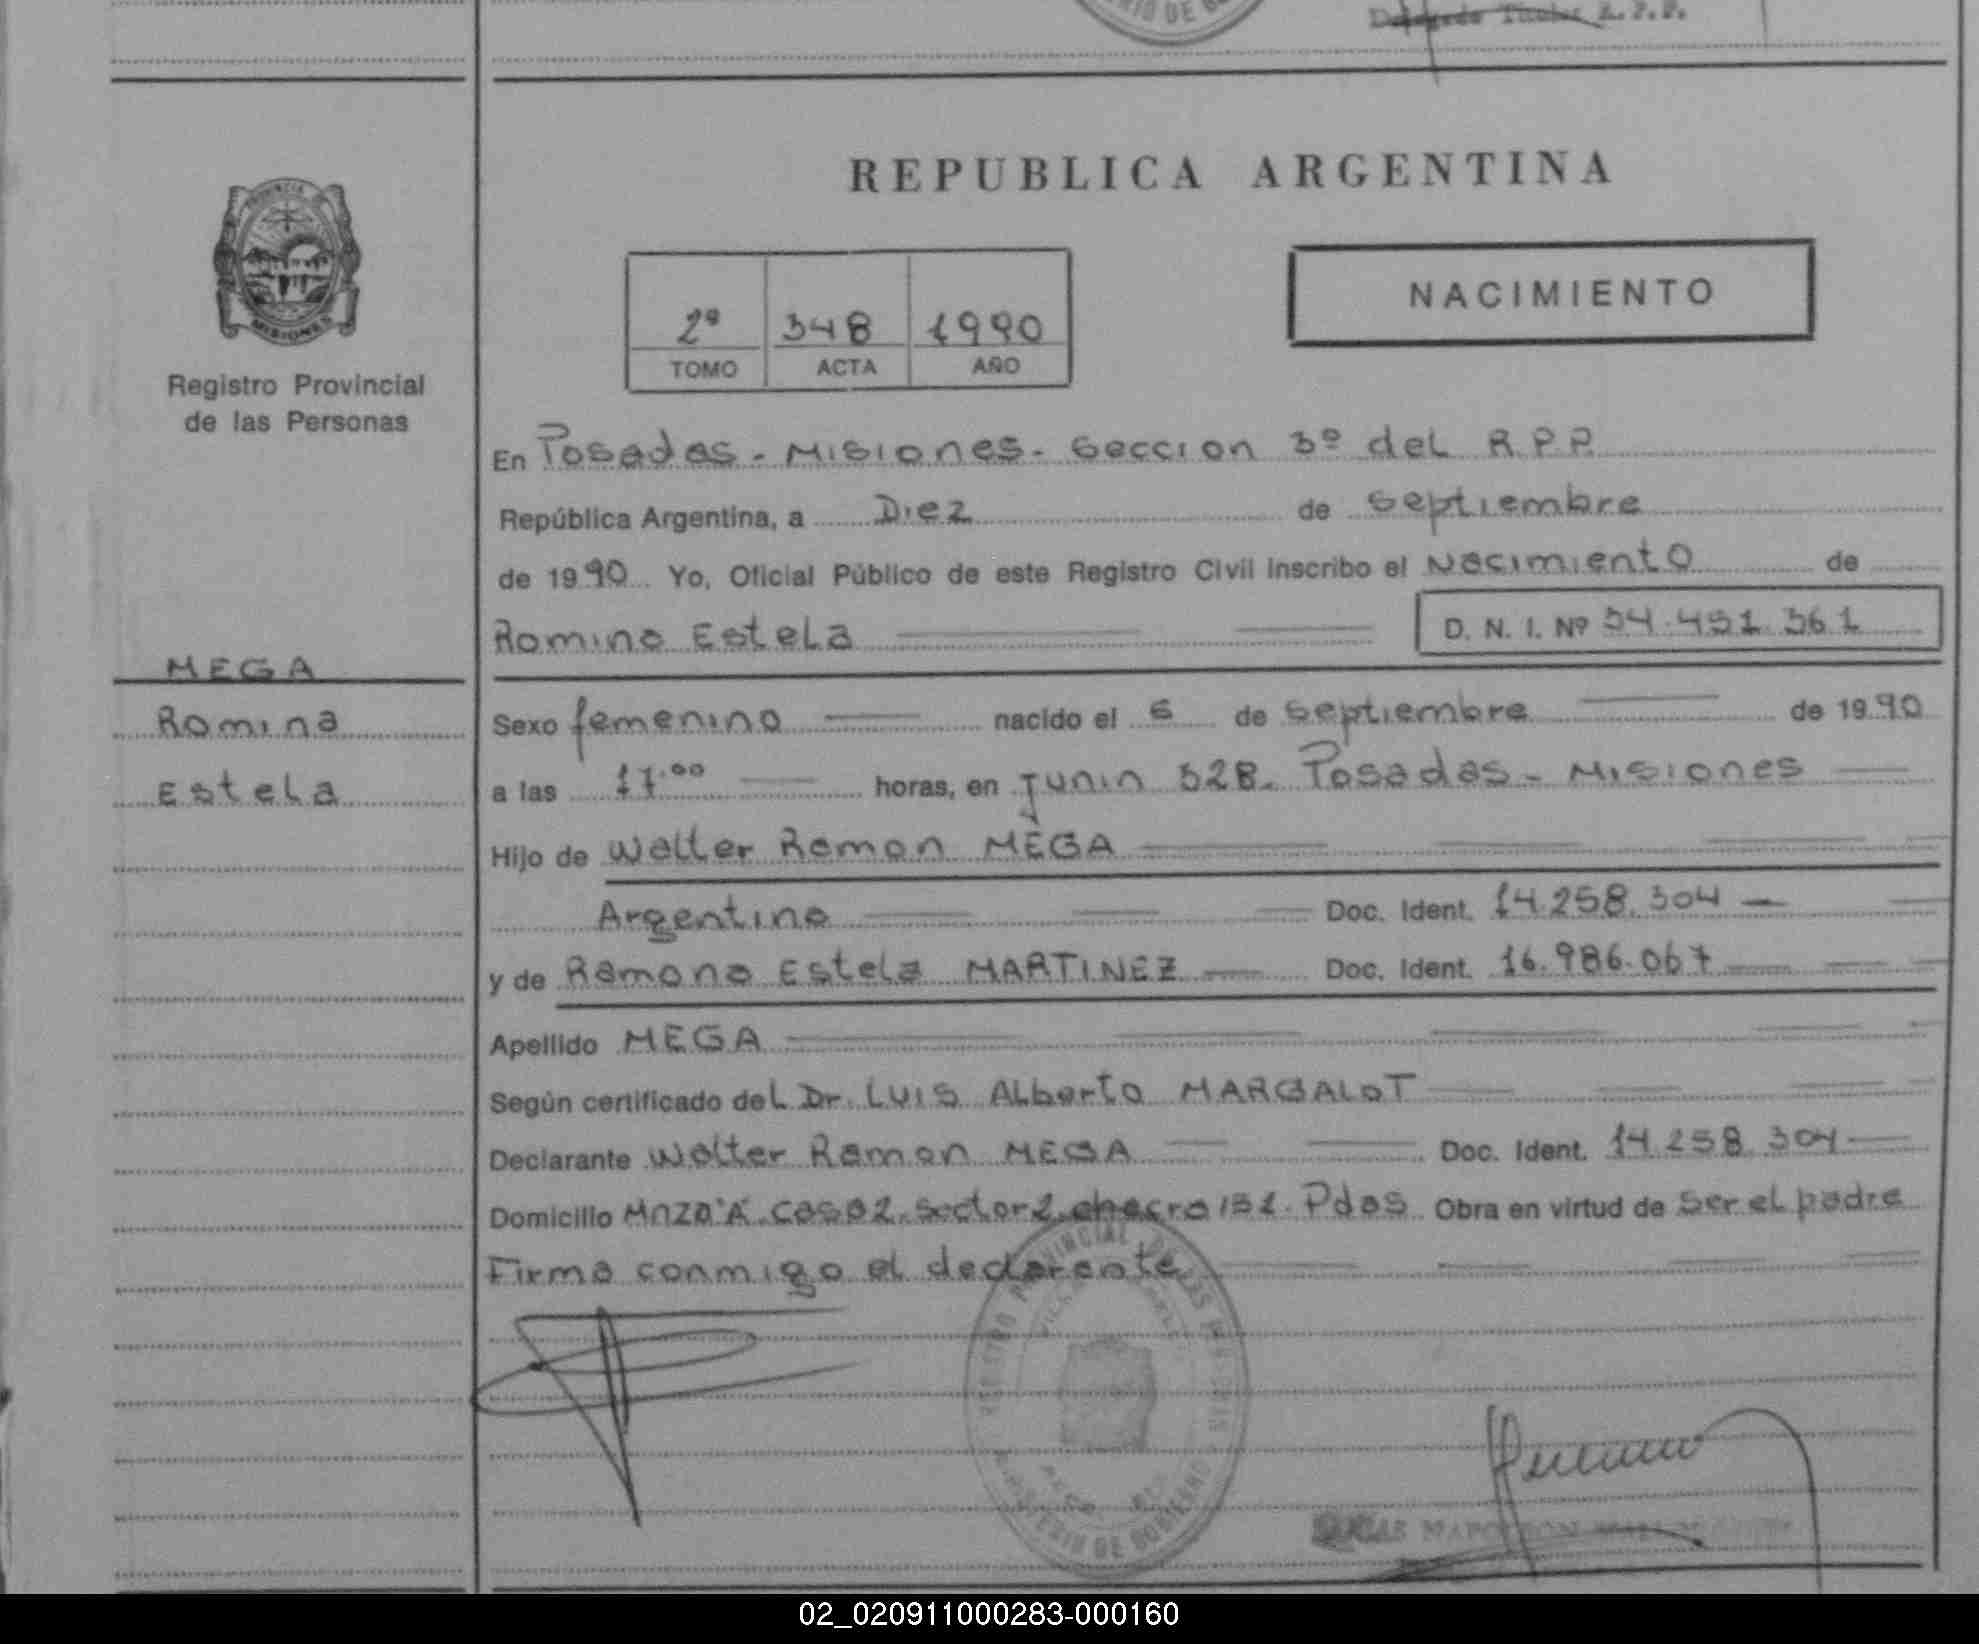 Delegado Titular R.P.P.
REPUBLICA ARGENTINA
PROVINCIA
MISIONES
Registro Provincial
de las Personas
2º 348 1990
TOMO ACTA AÑO
NACIMIENTO
En Posadas - Misiones - Seccion 3º del R.P.P.
República Argentina, a Diez de Septiembre
de 1990 Yo, Oficial Público de este Registro Civil inscribo el Nacimiento de
Romina Estela
D. N. I. Nº 34.451.361
MEGA
Romina
Estela
Sexo femenino nacido el 6 de Septiembre de 1990
a las 17.00 horas, en Junin 328. Posadas - Misiones
Hijo de Walter Ramon MEGA
Argentino Doc. Ident. 14.258.304
y de Ramona Estela MARTINEZ Doc. Ident. 16.986.067
Apellido MEGA
Según certificado del Dr. LUIS Alberto MARGALOT
Declarante Walter Ramon MEGA Doc. Ident. 14.258.304
Domicilio Mnza "A" casa 2. Sector 2. chacra 151. Pdas Obra en virtud de Ser el padre
Firma conmigo el declarante
REGISTRO PROVINCIAL DE LAS PERSONAS
MINISTERIO DE GOBIERNO
02_020911000283-000160